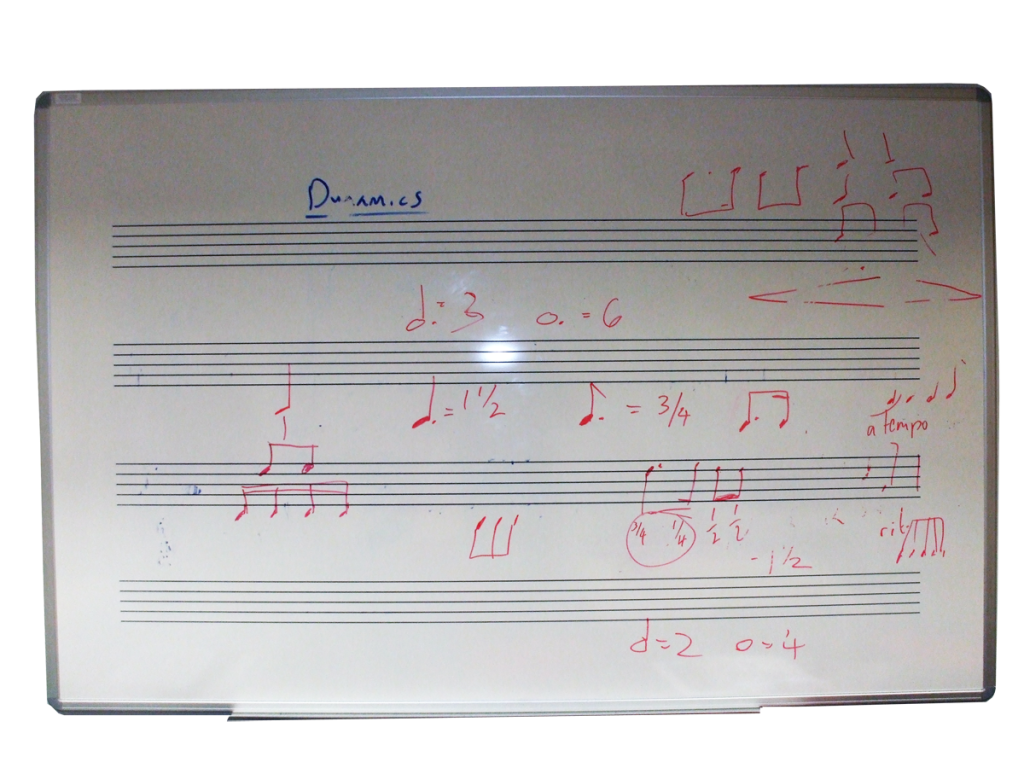 Dynamics
𝅗𝅥. = 3 𝅝. = 6
♩. = 1 1/2 ♪. = 3/4
a tempo
3/4 1/4 1/2 1/2
rit.
- 1 1/2
𝅗𝅥 = 2 𝅝 = 4